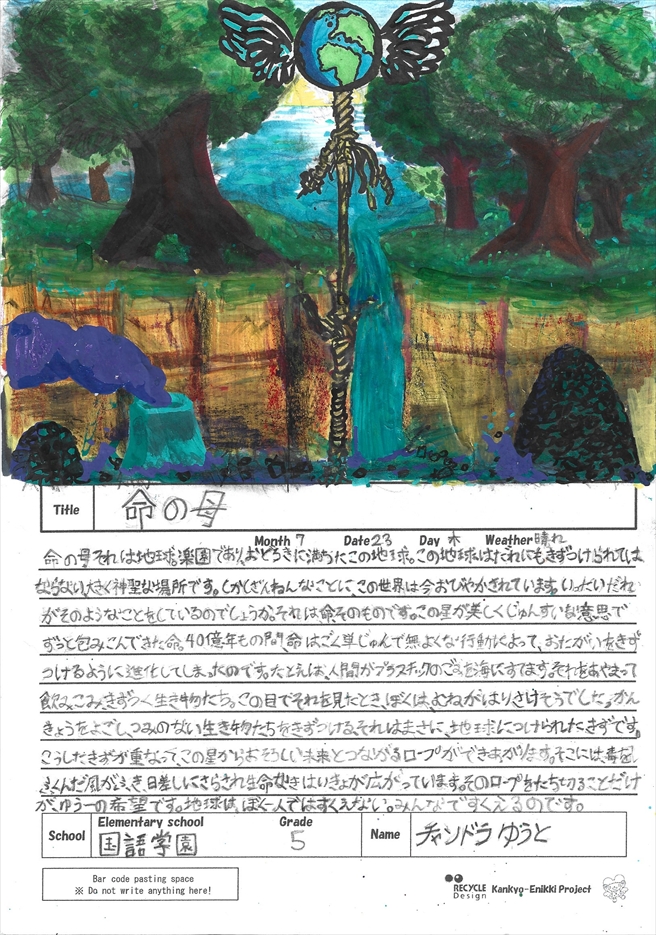 Title 命の母
Month 7 Date 23 Day 木 Weather 晴れ
命の母それは地球。楽園であり、おどろきに満ちたこの地球。この地球はだれにもきずつけられては
ならない、大きく神聖な場所です。しかしざんねんなことに、この世界は今おびやかされています。いったいだれ
がそのようなことをしているのでしょうか。それは命そのものです。この星が美しくじゅんすいな意思で
ずっと包みこんできた命。40億年もの間、命はごく単じゅんで無よくな行動によって、おたがいをきず
つけるように進化してしまったのです。たとえば、人間がプラスチックのごみを海にすてます。それをあやまって
飲みこみ、きずつく生き物たち。この目でそれを見たとき、ぼくは、むねがはりさけそうでした。かん
きょうをよごし、つみのない生き物たちをきずつける。それはまさに、地球につけられたきずです。
こうしたきずが重なって、この星からおそろしい未来とつながるロープができあがります。そこには、毒を
ふくんだ風がふき、日差しにさらされ生命なきはいきょが広がっています。そのロープをたち切ることだけ
が、ゆう一の希望です。地球は、ぼく一人ではすくえない。みんなですくえるのです。
School Elementary school 国語学園 Grade 5 Name チャンドラ ゆうと
Bar code pasting space
※ Do not write anything here!
RECYCLE Design Kankyo-Enikki Project